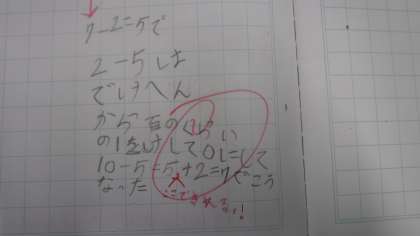 7-2=5で
2-5は
でけへん
から百のくらい
の1をけして0にして
10-5=5+2=7でこう
なった